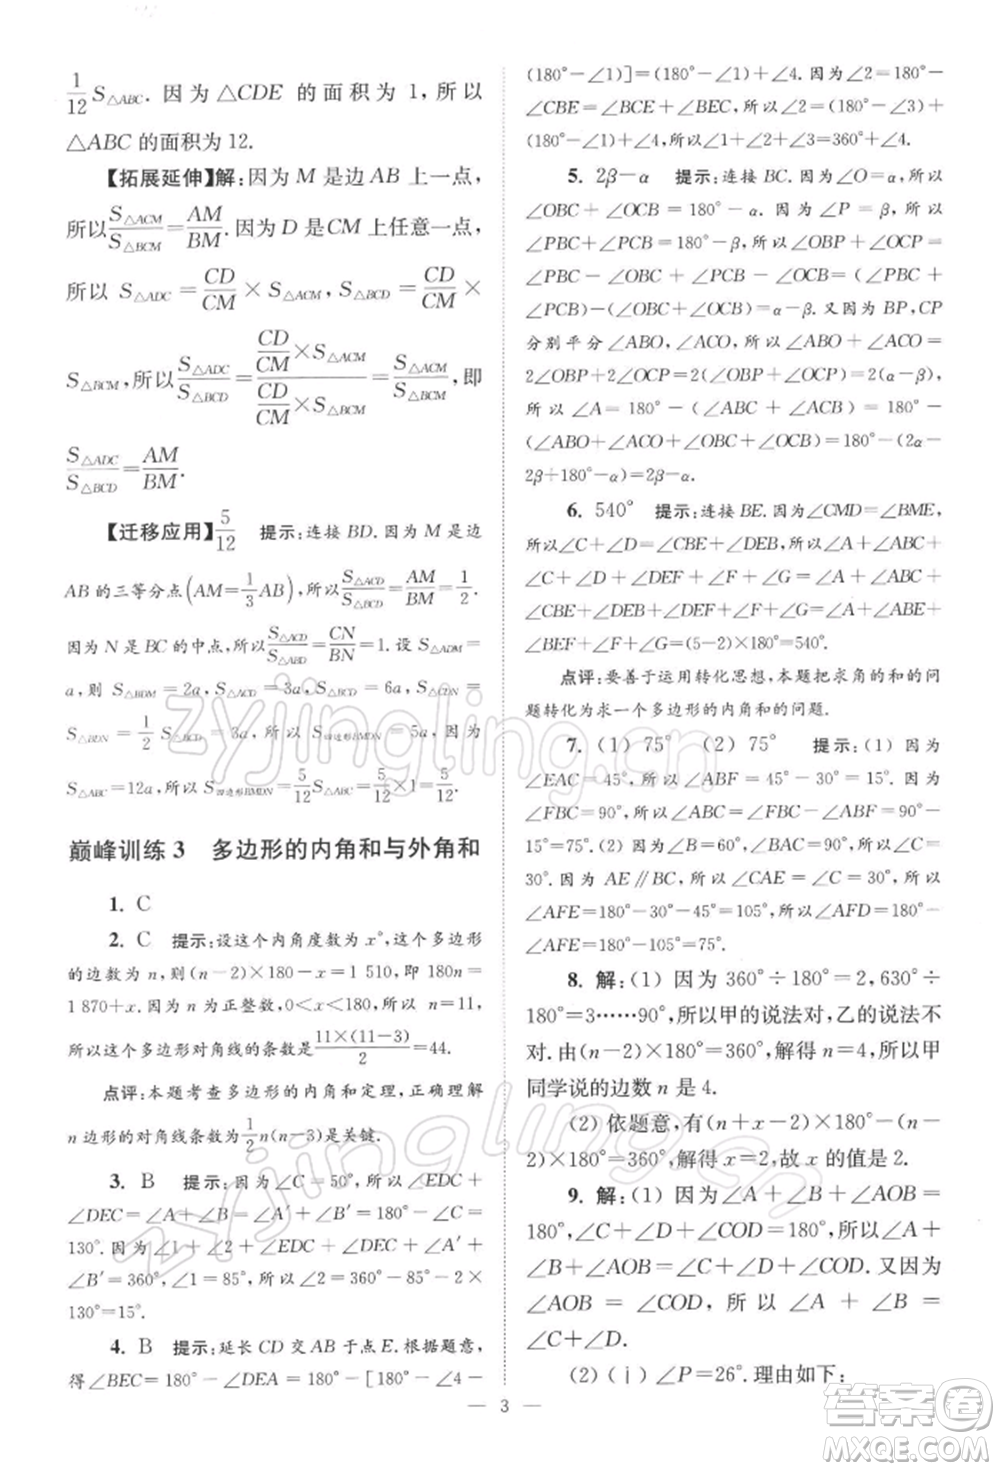 $\frac{1}{12}S_{△ABC}$. 因为 △CDE 的面积为 1, 所以
△ABC 的面积为 12.
【拓展延伸】解:因为 M 是边 AB 上一点,
所以 $\frac{S_{△ACM}}{S_{△BCM}}=\frac{AM}{BM}$. 因为 D 是 CM 上任意一点,
所以 $S_{△ADC}=\frac{CD}{CM}×S_{△ACM}$, $S_{△BCD}=\frac{CD}{CM}×$
$S_{△BCM}$, 所以 $\frac{S_{△ADC}}{S_{△BCD}}=\frac{\frac{CD}{CM}×S_{△ACM}}{\frac{CD}{CM}×S_{△BCM}}=\frac{S_{△ACM}}{S_{△BCM}}$, 即
$\frac{S_{△ADC}}{S_{△BCD}}=\frac{AM}{BM}$.
【迁移应用】$\frac{5}{12}$ 提示:连接 BD. 因为 M 是边
AB 的三等分点$(AM=\frac{1}{3}AB)$,所以$\frac{S_{△ACD}}{S_{△BCD}}=\frac{AM}{BM}=\frac{1}{2}$.
因为 N 是 BC 的中点,所以$\frac{S_{△ACD}}{S_{△ABD}}=\frac{CN}{BN}=1$. 设 $S_{△ADM}=$
a,则 $S_{△BDM}=2a$, $S_{△ACD}=3a$, $S_{△BCD}=6a$, $S_{△CDN}=$
$S_{△BDN}=\frac{1}{2}S_{△BCD}=3a$,所以 $S_{四边形BMDN}=5a$,所以
$S_{△ABC}=12a$,所以 $S_{四边形BMDN}=\frac{5}{12}S_{△ABC}=\frac{5}{12}×1=\frac{5}{12}$.
巅峰训练 3 多边形的内角和与外角和
1. C
2. C 提示:设这个内角度数为 x°,这个多边形
的边数为 n,则(n−2)×180−x=1 510,即 180n=
1 870+x. 因为 n 为正整数,0<x<180,所以 n=11,
所以这个多边形对角线的条数是$\frac{11×(11-3)}{2}=44$.
点评:本题考查多边形的内角和定理,正确理解
n 边形的对角线条数是$\frac{1}{2}n(n-3)$是关键.
3. B 提示:因为∠C=50°,所以∠EDC+
∠DEC=∠A′+∠B′=∠A+∠B=180°−∠C=
130°. 因为∠1+∠2+∠EDC+∠DEC+∠A′+
∠B′=360°,∠1=85°,所以∠2=360°−85°−2×
130°=15°.
4. B 提示:延长 CD 交 AB 于点 E. 根据题意,
得∠BEC=180°−∠DEA=180°−[180°−∠4−
(180°−∠1)]=(180°−∠1)+∠4. 因为∠2=180°−
∠CBE=∠BCE+∠BEC,所以∠2=(180°−∠3)+
(180°−∠1)+∠4,所以∠1+∠2+∠3=360°+∠4.
5. 2β−α 提示:连接 BC. 因为∠O=α,所以
∠OBC+∠OCB=180°−α. 因为∠P=β,所以
∠PBC+∠PCB=180°−β,所以∠OBP+∠OCP=
(∠PBC+∠PCB)−(∠OBC+∠OCB)=(180°−β)−(180°−α)=α−β. 又因为 BP,CP
分别平分∠ABO,∠ACO,所以∠ABO+∠ACO=
2∠OBP+2∠OCP=2(∠OBP+∠OCP)=2(α−β),
所以∠A=180°−(∠ABC+∠ACB)=180°−
(∠ABO+∠ACO+∠OBC+∠OCB)=180°−(2α−
2β+180°−α)=2β−α.
6. 540° 提示:连接 BE. 因为∠CMD=∠BME,
所以∠C+∠D=∠CBE+∠DEB,所以∠A+∠ABC+
∠C+∠D+∠DEF+∠F+∠G=∠A+∠ABC+
∠CBE+∠DEB+∠DEF+∠F+∠G=∠A+∠ABE+
∠BEF+∠F+∠G=(5−2)×180°=540°.
点评:要善于运用转化思想,本题把求角的和的问
题转化为求一个多边形的内角和的问题.
7. (1) 75° (2) 75° 提示:(1) 因为
∠EAC=45°,所以∠ABF=∠EAC=45°. 因为
∠FBC=90°,所以∠ABC=∠ABF+∠FBC=
135°. 因为∠C=30°,所以∠BAC=180°−30°−135°=15°,所以∠AFB=90°−
15°=75°. (2) 因为∠B=60°,∠BAC=90°,所以
∠C=30°. 因为 AE∥BC,所以∠CAE=∠C=30°,所以
∠AFE=180°−30°−45°=105°,所以∠AFD=180°−
∠AFE=180°−105°=75°.
8. 解:(1) 因为 360°÷180°=2,630°÷
180°=3……90°,所以甲的说法对,乙的说法不
对. 由(n−2)×180°=360°,解得 n=4,所以甲
同学说的边数 n 是 4.
(2) 依题意,有(n+x−2)×180°−(n−
2)×180°=360°,解得 x=2,故 x 的值是 2.
9. 解:(1) 因为∠A+∠B+∠AOB=
180°,∠C+∠D+∠COD=180°,所以∠A+
∠B+∠AOB=∠C+∠D+∠COD. 又因为
∠AOB=∠COD,所以∠A+∠B=
∠C+∠D.
(2) (ⅰ) ∠P=26°. 理由如下:
3
zyjingling.cn
zyjingling.cn
答案圈
MXQE.COM